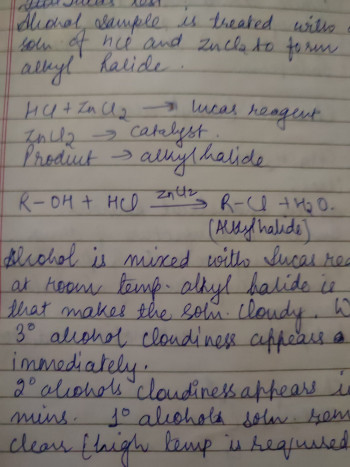 Lucas test
Alcohol sample is treated with a
soln of HCl and ZnCl2 to form
alkyl halide.
HCl + ZnCl2 → Lucas reagent
ZnCl2 → catalyst.
Product → alkyl halide
R-OH + HCl —ZnCl2→ R-Cl + H2O.
(Alkyl halide)
Alcohol is mixed with Lucas rea
at room temp. alkyl halide is
that makes the soln. cloudy.
3° alcohol cloudiness appears
immediately.
2° alcohols cloudiness appears i
mins. 1° alcohols soln. rem
clear (high temp is required